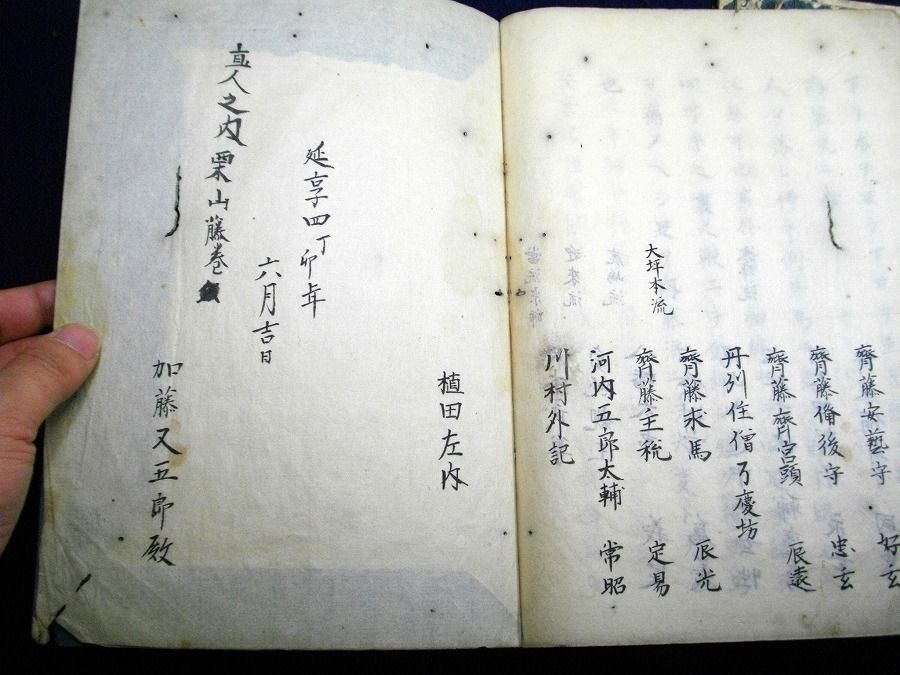 大坪本流
齊藤安藝守 好玄
齊藤備後守 忠玄
齊藤齊宮頭 辰遠
丹州住僧了慶坊
齊藤求馬 辰光
齊藤主税 定易
河内五郎太輔 常昭
川村外記
植田左内
延享四丁卯年
六月吉日
直人之内栗山藤巻
加藤又五郎殿